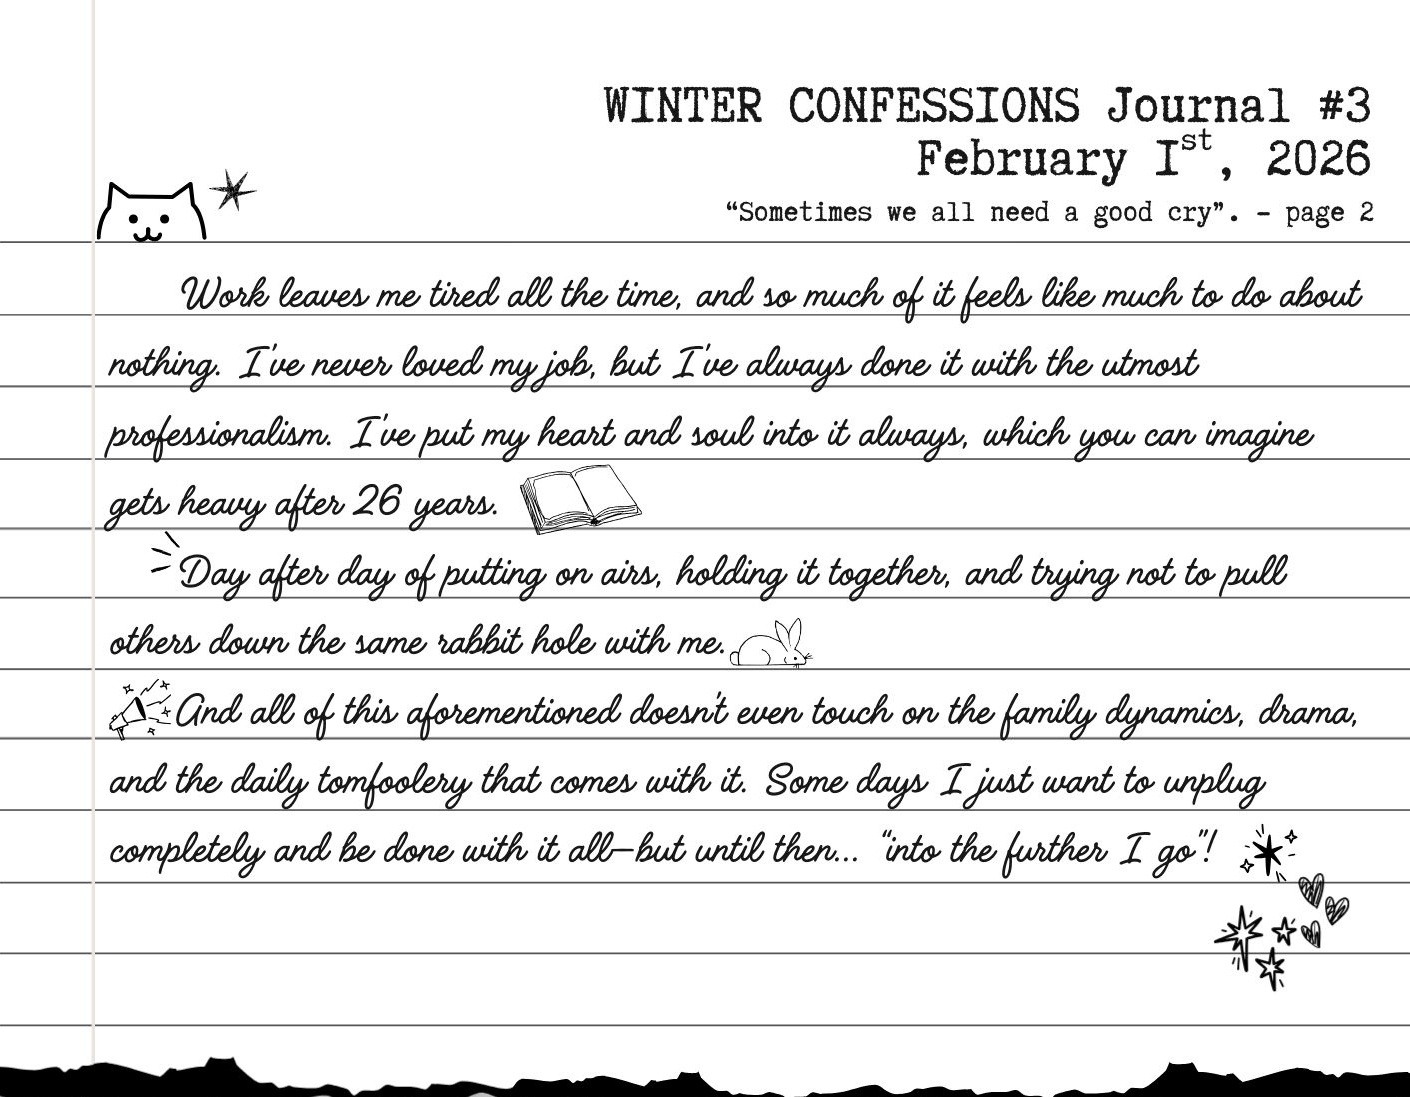 WINTER CONFESSIONS Journal #3
February 1st, 2026
“Sometimes we all need a good cry”. - page 2
Work leaves me tired all the time, and so much of it feels like much to do about
nothing. I've never loved my job, but I've always done it with the utmost
professionalism. I've put my heart and soul into it always, which you can imagine
gets heavy after 26 years.
Day after day of putting on airs, holding it together, and trying not to pull
others down the same rabbit hole with me.
And all of this aforementioned doesn't even touch on the family dynamics, drama,
and the daily tomfoolery that comes with it. Some days I just want to unplug
completely and be done with it all—but until then... “into the further I go”!